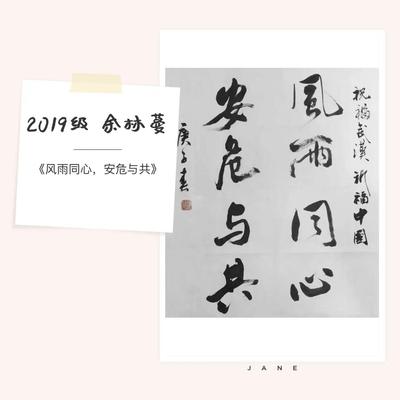 2019级 余林蔓
《风雨同心，安危与共》
祝福武汉 祈福中國
風雨同心
安危与共
庚子春
JANE